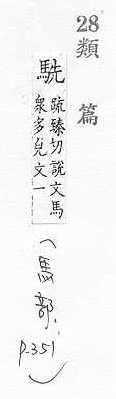 28
類篇
駪
疏臻切說文馬
衆多皃文一
(馬部,
p.351)